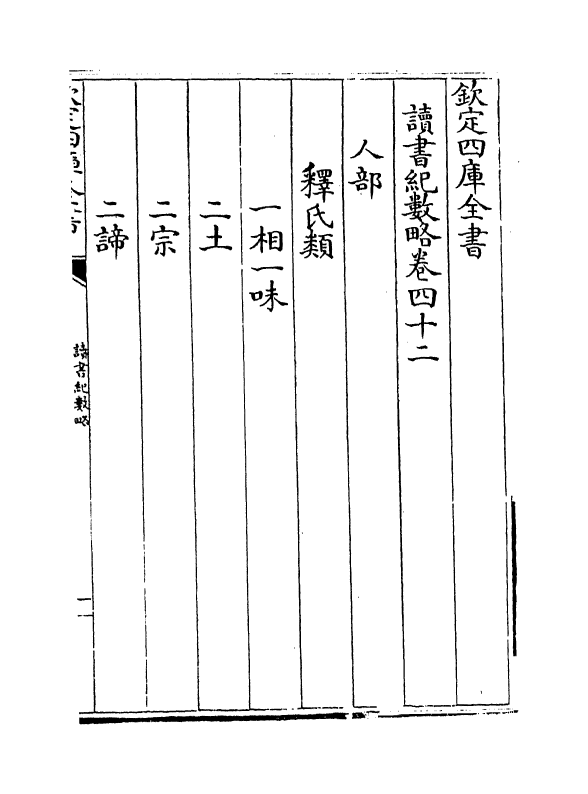 欽定四庫全書
讀書紀數略卷四十二
人部
釋氏類
一相一味
二土
二宗
二諦
讀書紀數略
一